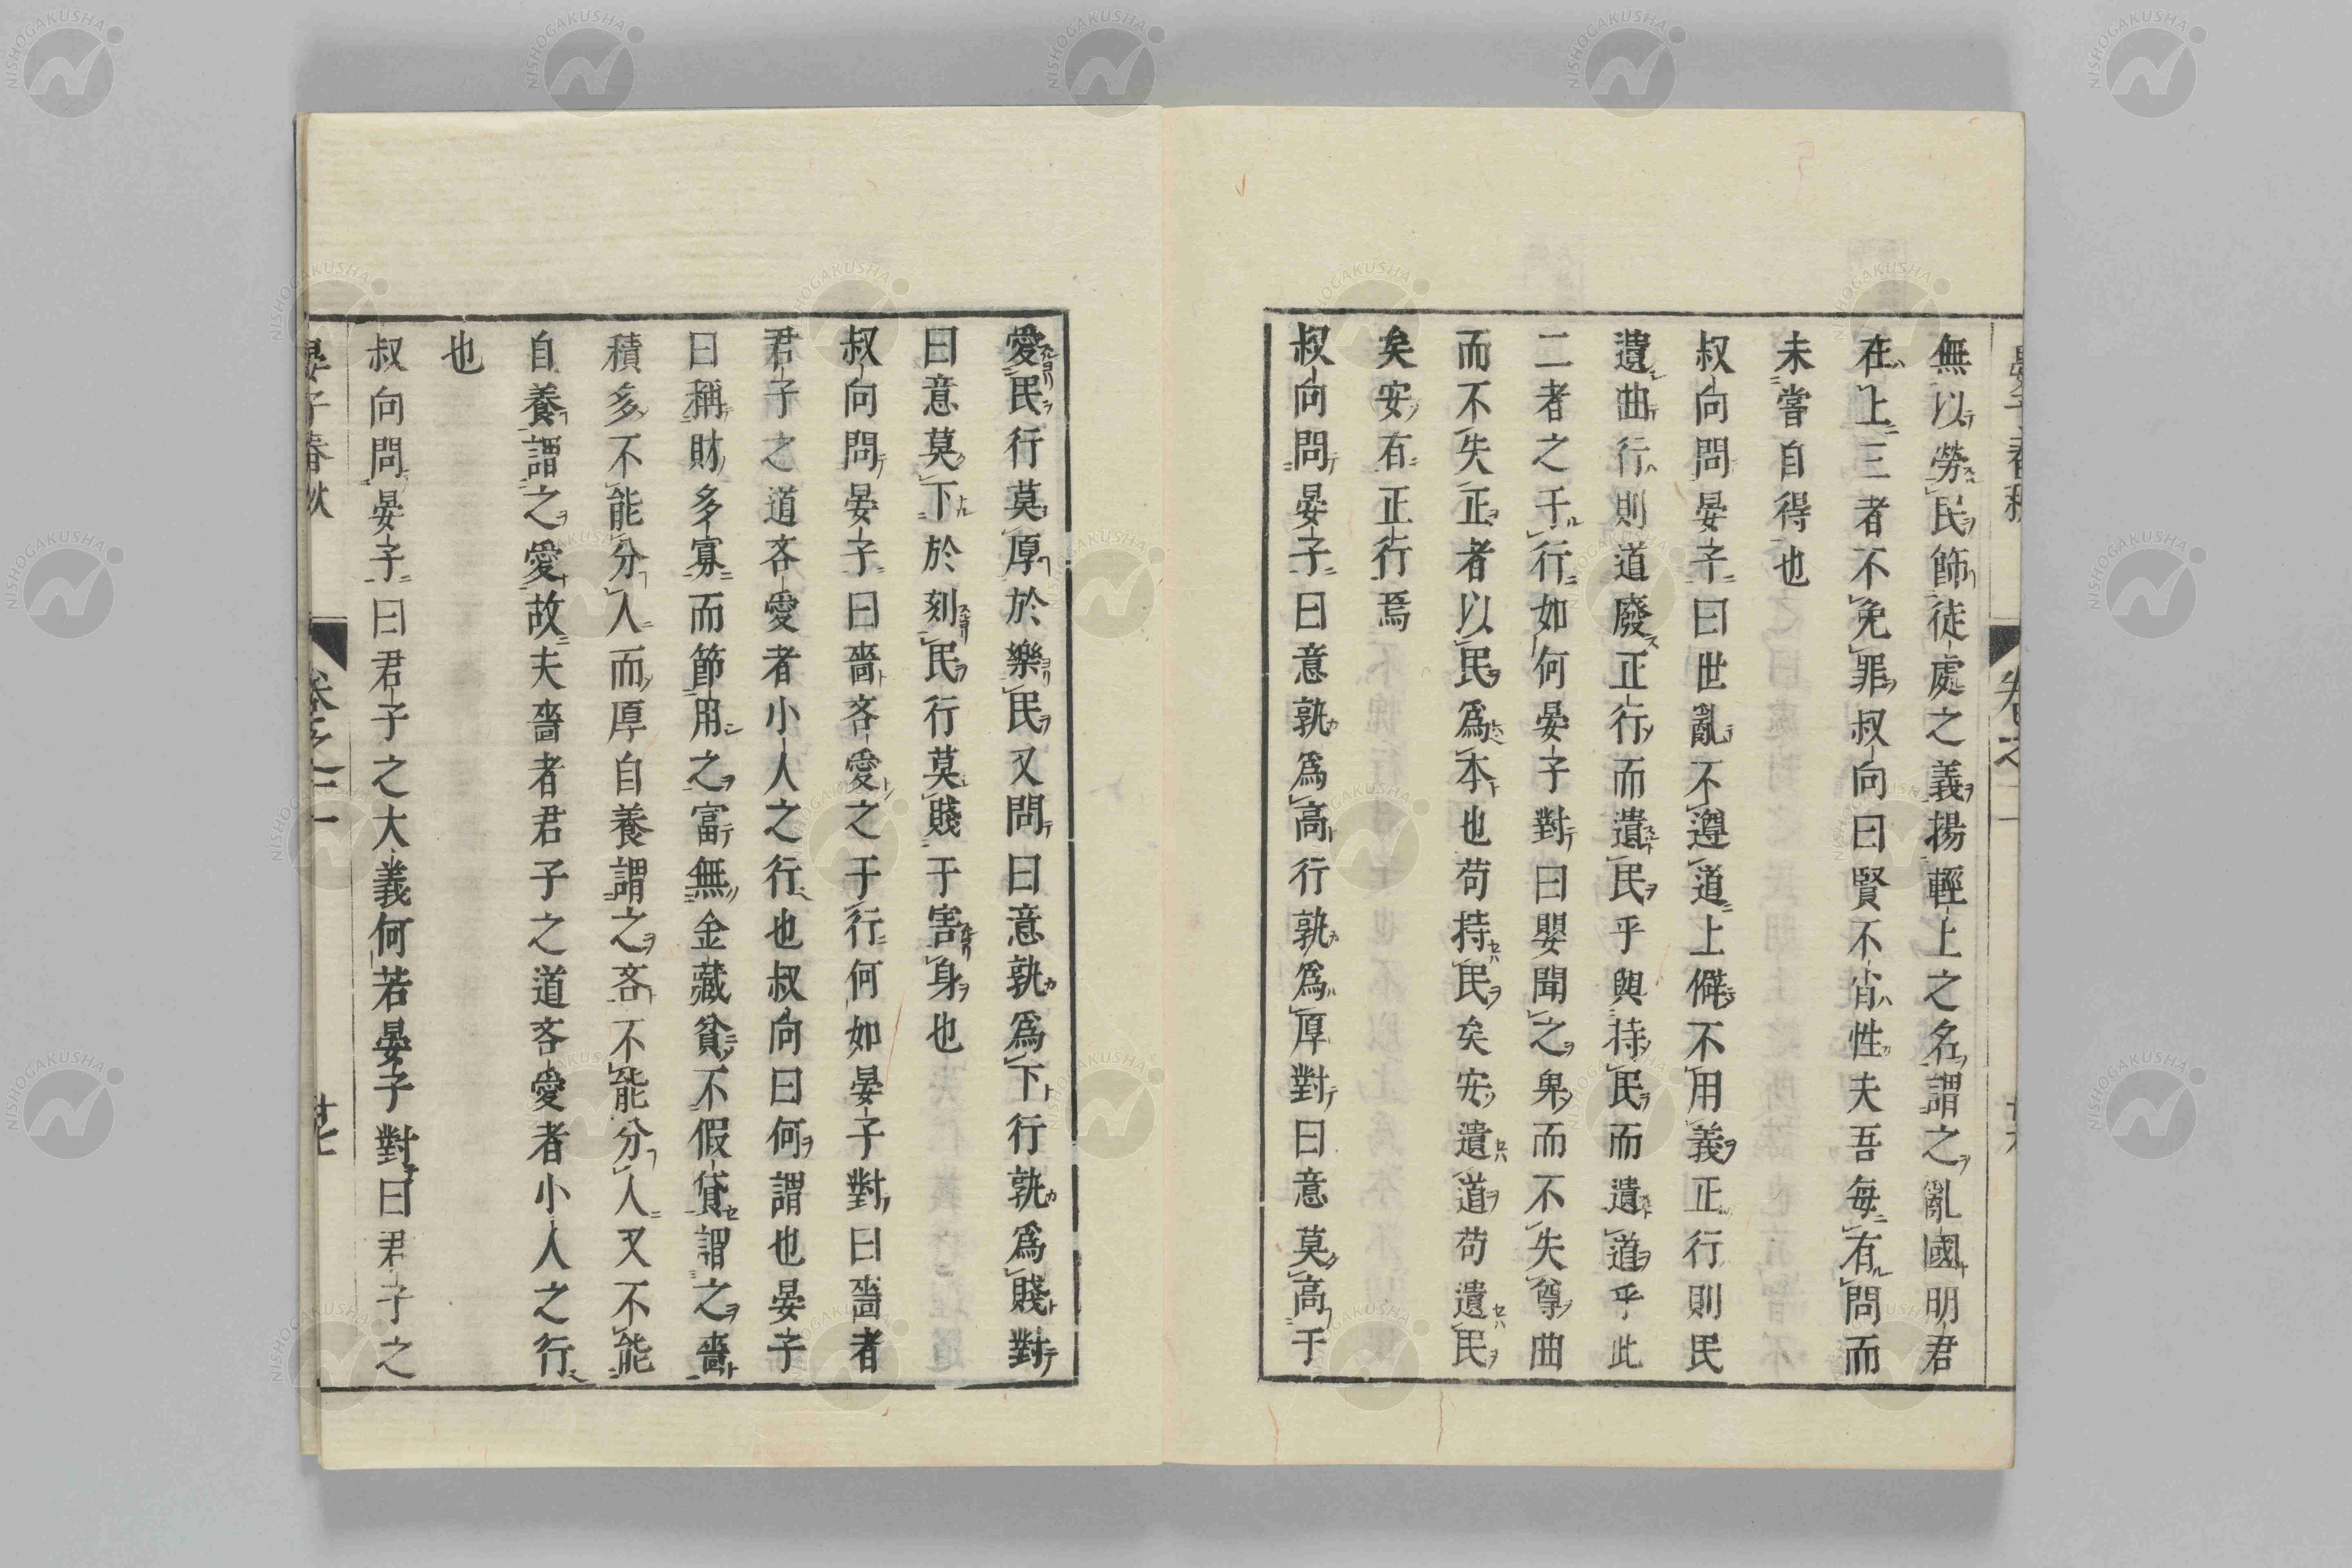 無以勞民飾徒處之義揚輕上之名謂之亂國明君
在上三者不免罪叔向曰賢不肖性夫吾每有問而
未嘗自得也
叔向問晏子曰世亂不遵道上僻不用義正行則民
遺曲行則道廢正行而遺民乎與持民而遺道乎此
二者之于行如何晏子對曰嬰聞之卑而不失尊曲
而不失正者以民為本也苟持民矣安遺道苟遺民
矣安有正行焉
叔向問晏子曰意孰為高行孰為厚對曰意莫高于
愛民行莫厚於樂民又問曰意孰為下行孰為賤對
曰意莫下於刻民行莫賤于害身也
叔向問晏子曰嗇吝愛之于行何如晏子對曰嗇者
君子之道吝愛者小人之行也叔向曰何謂也晏子
曰稱財多寡而節用之富無金藏貧不假貸謂之嗇
積多不能分人而厚自養謂之吝不能分人又不能
自養謂之愛故夫嗇者君子之道吝愛者小人之行
也
叔向問晏子曰君子之大義何若晏子對曰君子之
晏子春秋
卷之二
廿七
NISHOGAKUSHA